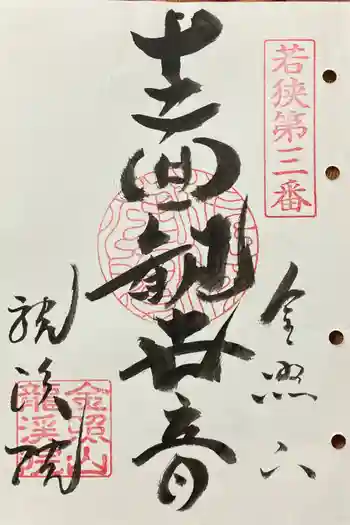 若狭第三番
金照山
十一面観世音
龍渓院
金照山
龍渓院